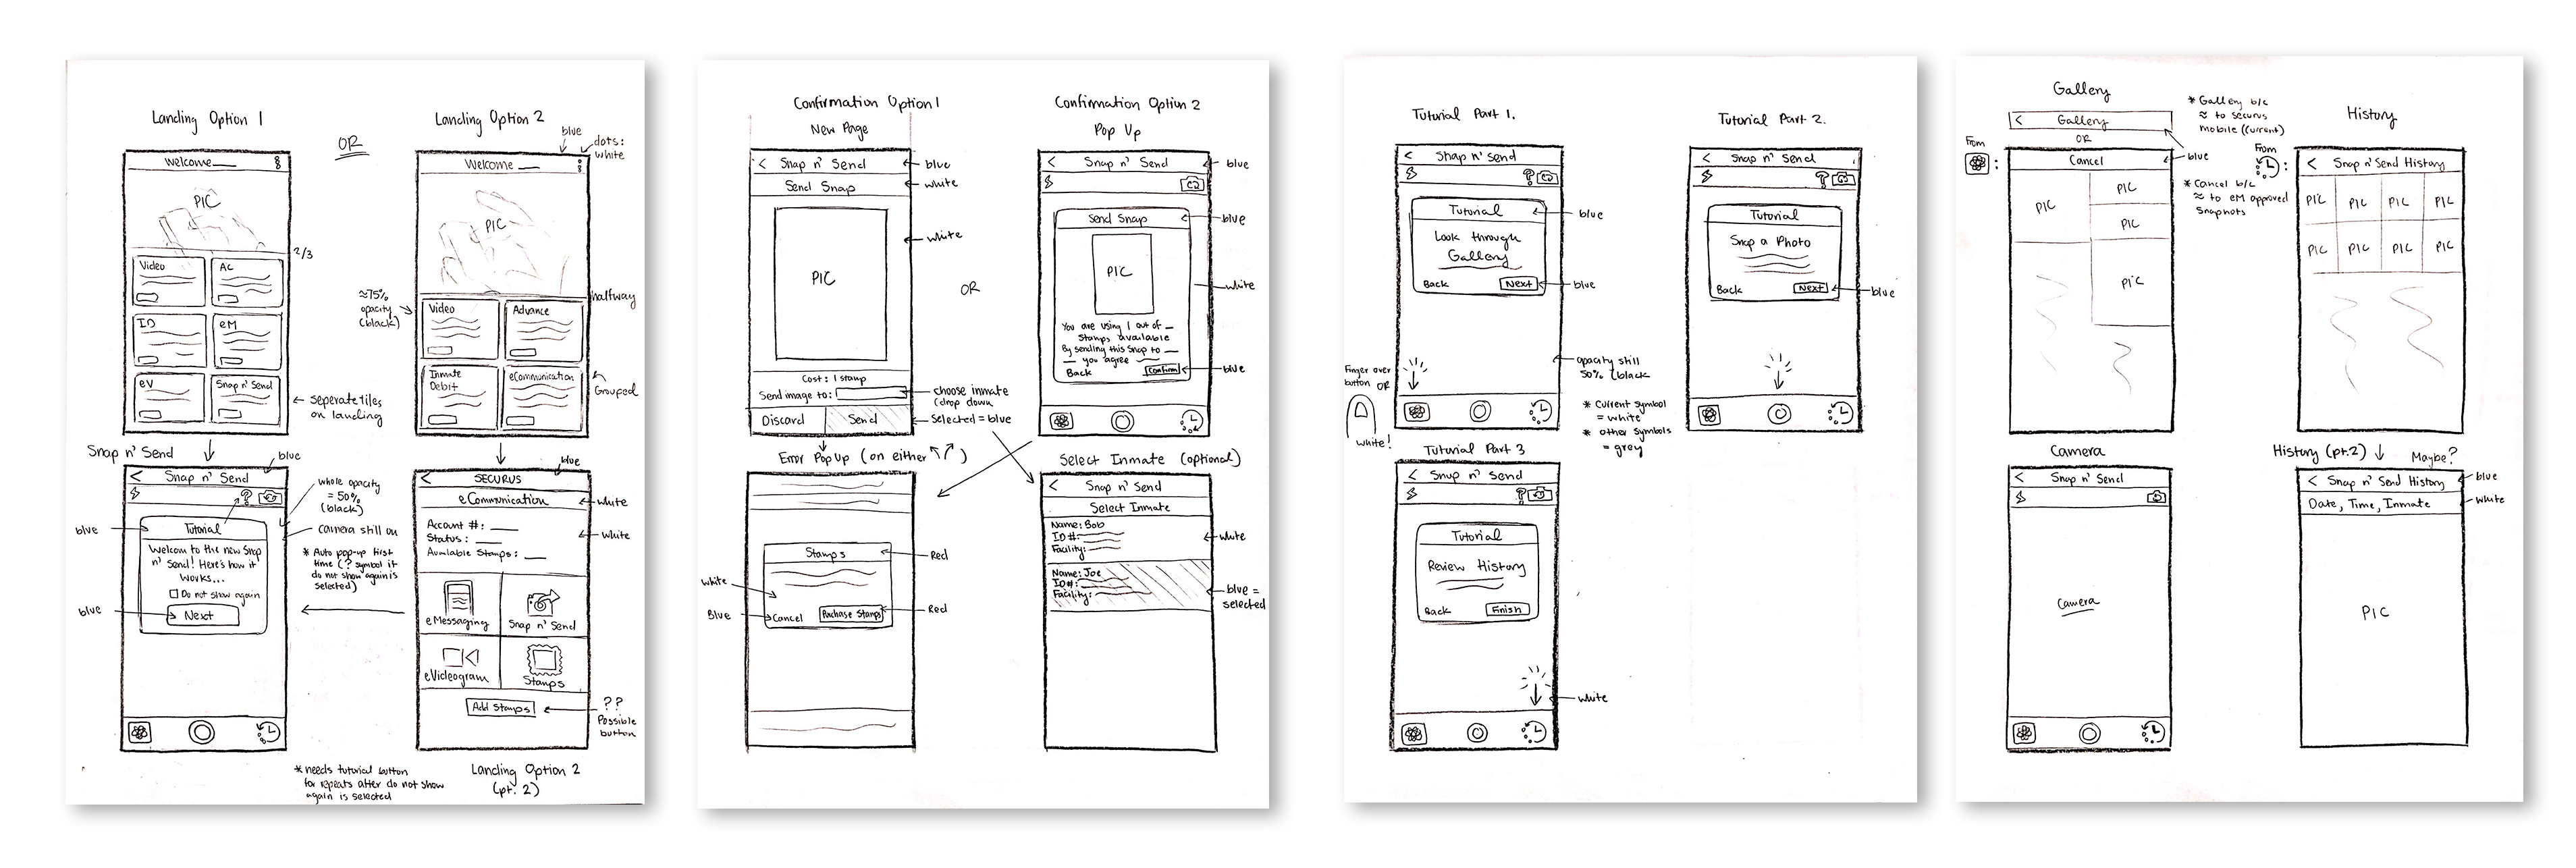 Landing Option 1
OR
Landing Option 2
blue
dots:
white
Welcome
PIC
2/3
Video
AC
ID
eM
eV
Snap n' Send
← seperate tiles
on landing
Welcome
PIC
halfway
≈75%
opacity
(black)
Video
Advance
Inmate
Debit
eCommunication
Grouped
Snap n' Send
blue
Snap n' Send
?
Tutorial
Welcom to the new Snap
n' Send! Here's how it
works...
Do not show again
Next
blue
blue
whole opacity
= 50%
(black)
camera still on
* Auto pop-up first
time (? symbol if
do not show again is
selected)
blue
SECURUS
eCommunication
white
Account #:
Status:
Available Stamps:
white
eMessaging
Snap n' Send
eVideogram
Stamps
Add Stamps
??
Possible
button
* needs tutorial button
for repeats after do not show
again is selected
Landing Option 2
(pt. 2)
Confirmation Option 1
New Page
Snap n' Send
blue
Send Snap
white
PIC
white
Cost: 1 stamp
Send image to:
choose inmate
(drop down
Discard
Send
Selected = blue
OR
Confirmation Option 2
Pop Up
Snap n' Send
blue
Send Snap
blue
PIC
white
You are using 1 out of
Stamps available
By sending this Snap to
you agree
Back
Confirm
blue
Error Pop Up (on either )
Stamps
Red
white
Blue
Cancel
Puchase Stamps
Red
Select Inmate (optional)
Snap n' Send
Select Inmate
Name: Bob
ID#:
Facility:
white
Name: Joe
ID#:
Facility:
blue =
selected
Tutorial Part 1.
Snap n' Send
?
Tutorial
blue
Look through
Gallery
Back
Next
blue
Finger over
button OR
white!
opacity still
50% (black
* Current symbol
= white
* other symbols
= grey
Tutorial Part 2.
Snap n' Send
?
Tutorial
Snap a Photo
Back
Next
blue
Tutorial Part 3
Snap n' Send
?
Tutorial
Review History
Back
Finish
white
Gallery
Gallery
OR
From
:
Cancel
blue
PIC
PIC
PIC
PIC
* Gallery b/c
≈ to securus
mobile (current)
* Cancel b/c
≈ to eM approved
Snapshots
History
From
:
Snap n' Send History
PIC PIC PIC PIC
PIC PIC PIC PIC
Camera
Snap n' Send
Camera
History (pt.2) Maybe?
Snap n' Send History
blue
Date, Time, Inmate
white
PIC